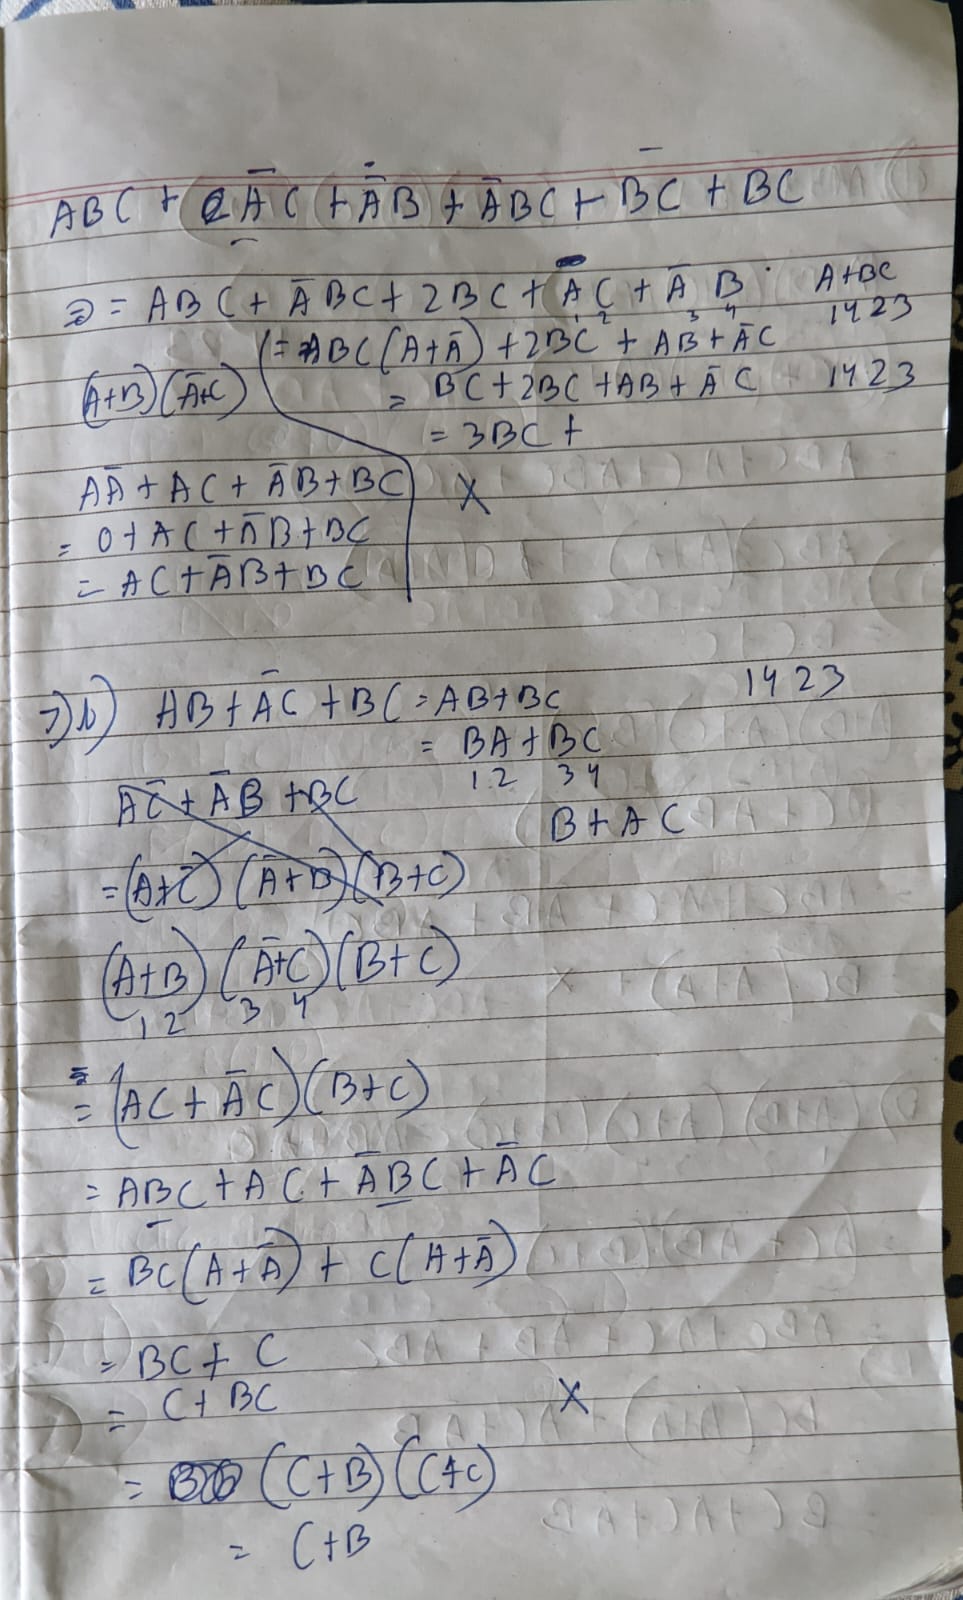 ABC + ĀC + ĀB + ĀBC + BC + BC
= ABC + ĀBC + 2BC + ĀC + ĀB
A+BC
1 2 3 4
1423
= ABC(A+Ā) + 2BC + AB + ĀC
(A+B)(Ā+C)
= BC + 2BC + AB + ĀC
1423
= 3BC +
AĀ + AC + ĀB + BC
X
= 0 + AC + ĀB + BC
= AC + ĀB + BC
b) AB + ĀC + BC = AB + BC
1423
= BA + BC
12 34
AC + ĀB + BC
B + AC
= (A+C) (Ā+B) (B+C)
(A+B) (Ā+C) (B+C)
12 3 4
= (AC + ĀC)(B+C)
= ABC + AC + ĀBC + ĀC
= BC(A+Ā) + C(A+Ā)
= BC + C
= C + BC
X
= (C+B)(C+C)
= C+B